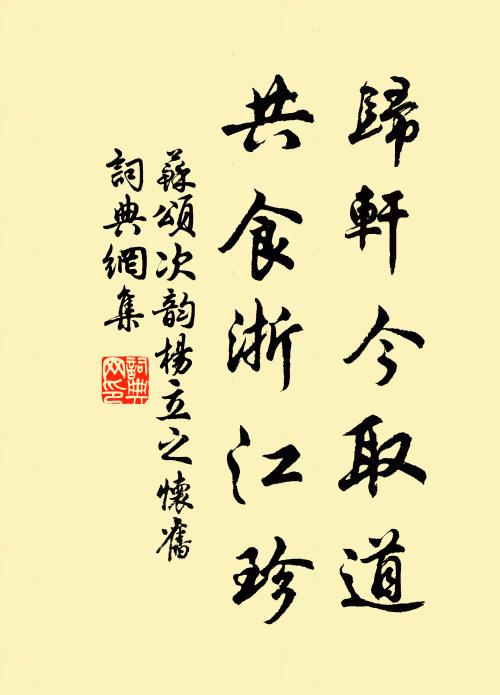 歸軒今取道
共食浙江珍
蘇頌次韵楊立之懷舊
詞典網集
詞典网印